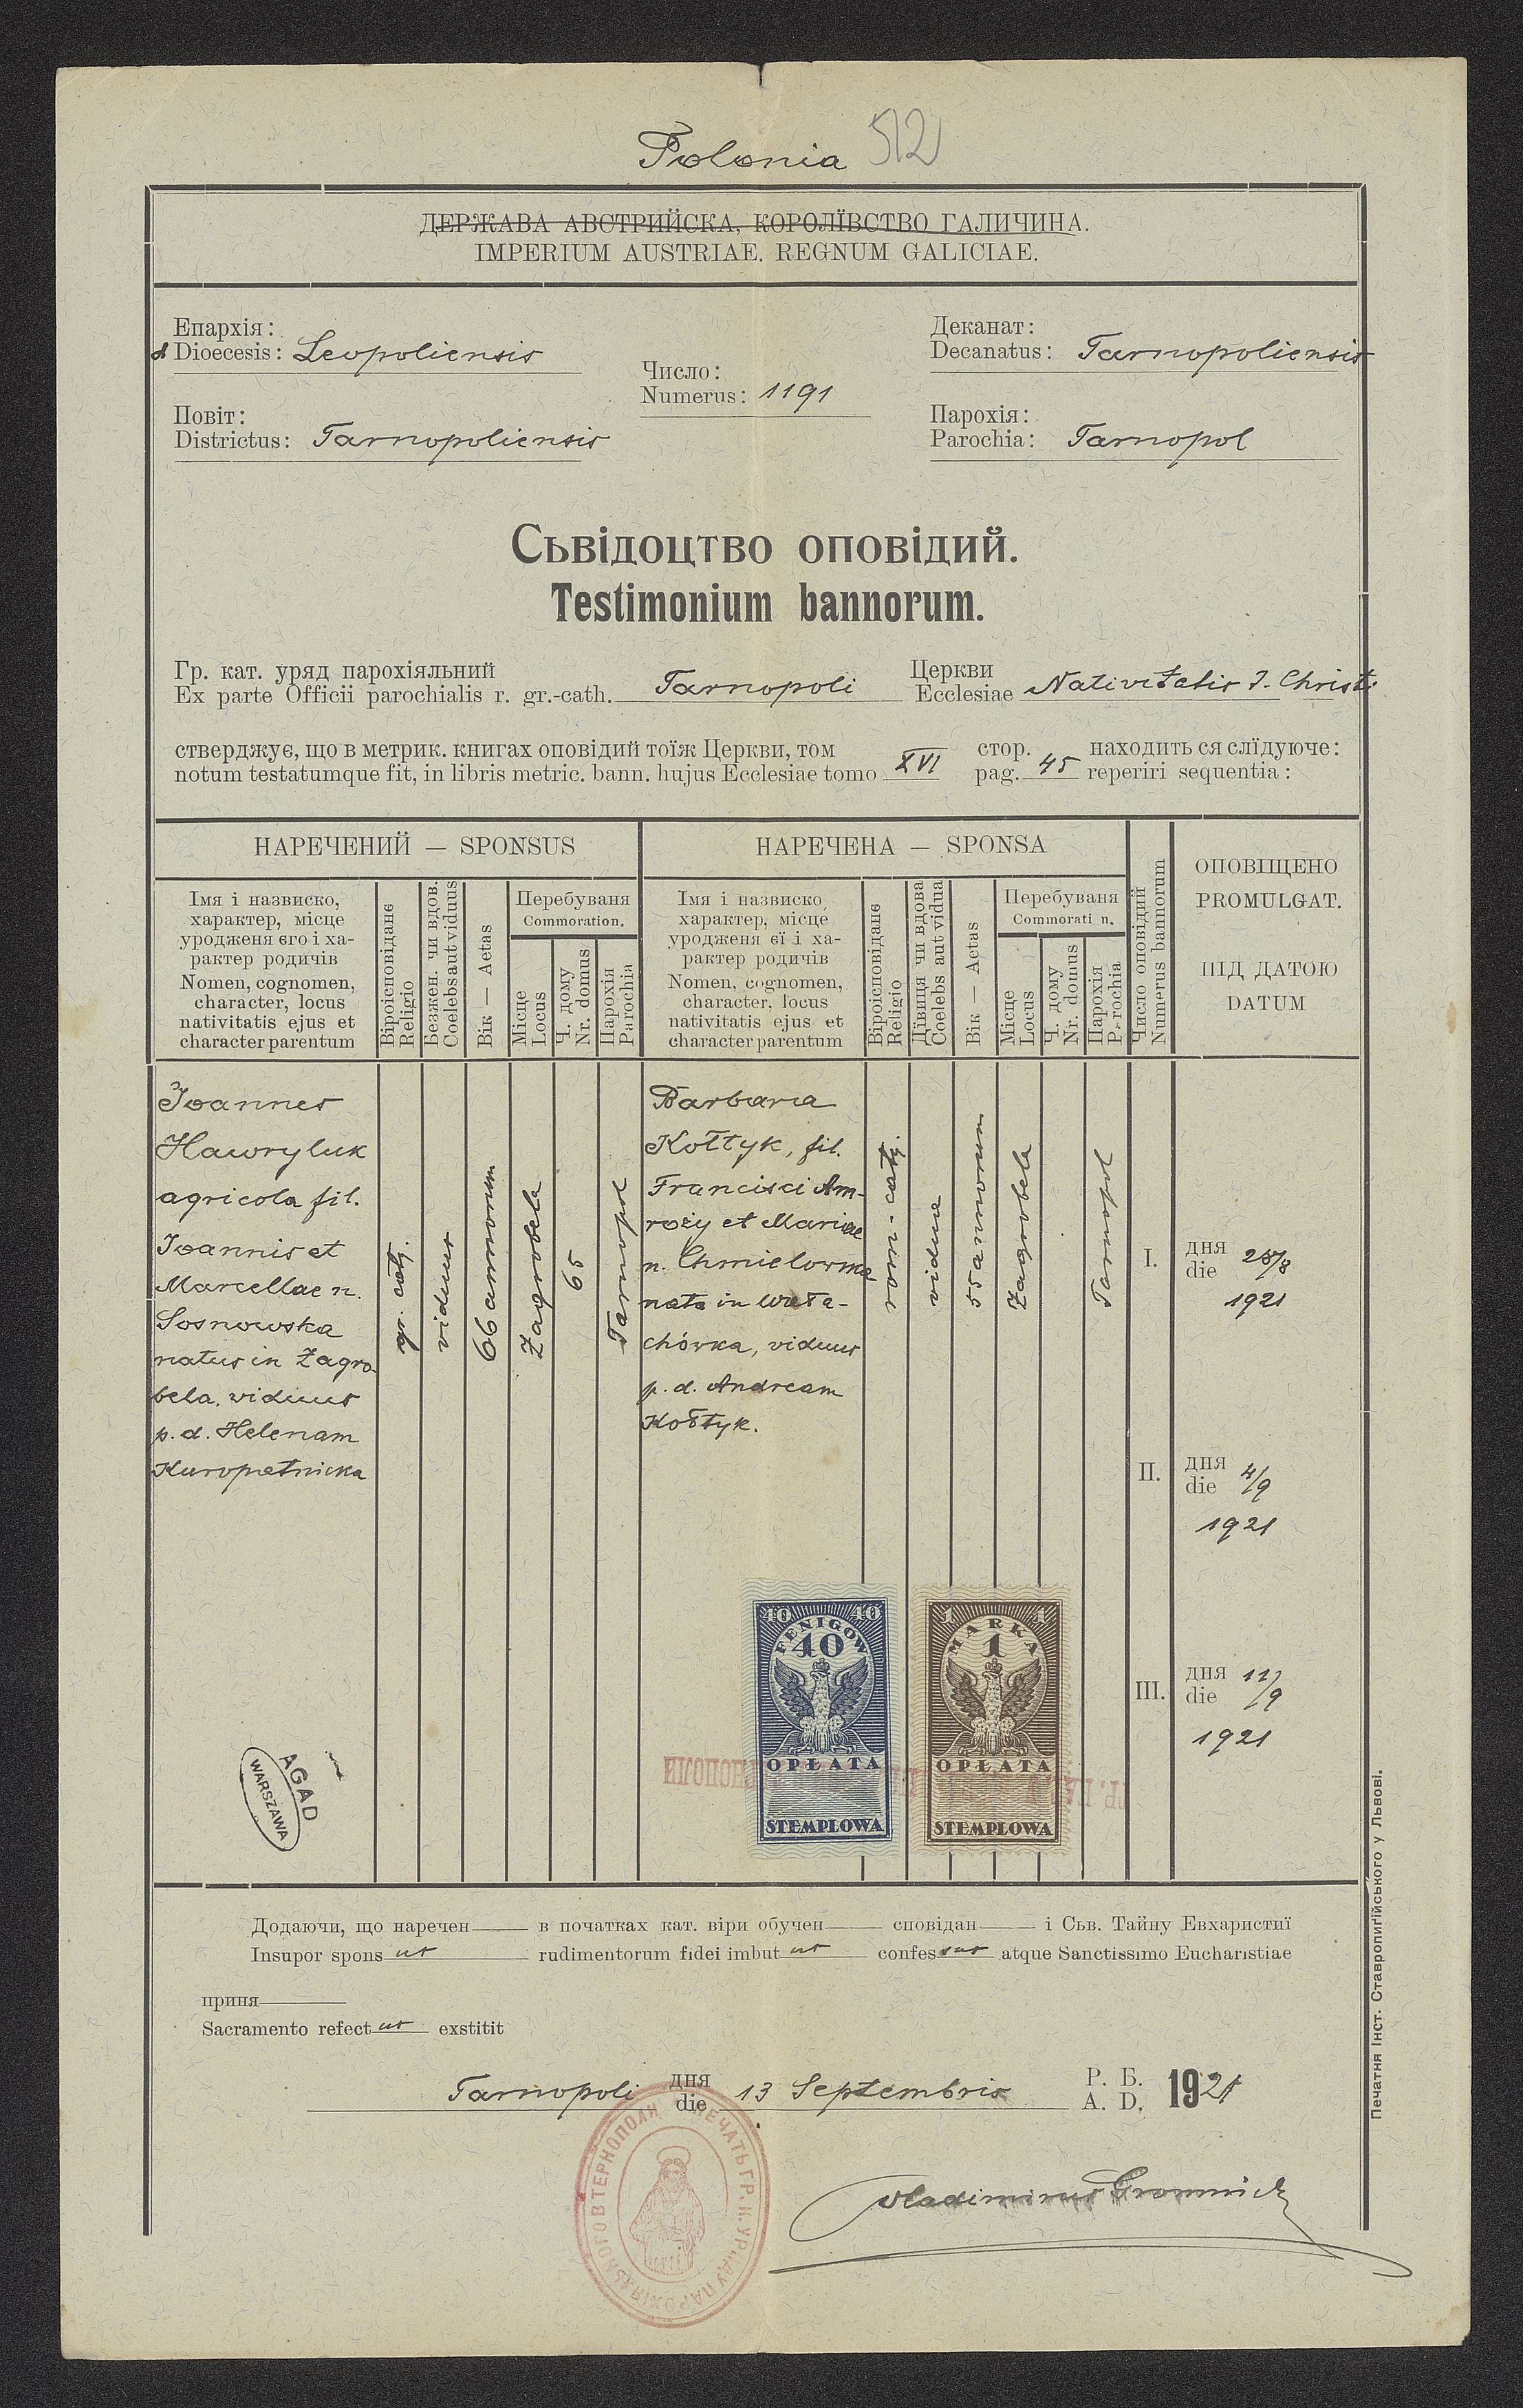 Polonia 512
ДЕРЖАВА АВСТРИЙСКА, КОРОЛЇВСТВО ГАЛИЧИНА.
IMPERIUM AUSTRIAE. REGNUM GALICIAE.
Епархія:
Dioecesis: Leopoliensis
Деканат:
Decanatus: Tarnopoliensis
Число:
Numerus: 1191
Повіт:
Districtus: Tarnopoliensis
Парохія:
Parochia: Tarnopol
Сьвідоцтво оповідий.
Testimonium bannorum.
Гр. кат. уряд парохіяльний Церкви
Ex parte Officii parochialis r. gr.-cath. Tarnopoli Ecclesiae Nativitatis J. Christi
стверджує, що в метрик. книгах оповідий тоїж Церкви, том стор. находить ся слїдуюче:
notum testatumque fit, in libris metric. bann. hujus Ecclesiae tomo XVI pag. 45 reperiri sequentia:
НАРЕЧЕНИЙ — SPONSUS
НАРЕЧЕНА — SPONSA
Імя і назвиско,
характер, місце
уродженя єго і ха-
рактер родичів
Nomen, cognomen,
character, locus
nativitatis ejus et
character parentum
Віроісповіданє
Religio
Безжен. чи вдов.
Coelebs aut viduus
Вік — Aetas
Перебуваня
Commoration.
Місце
Locus
Ч. дому
Nr. domus
Парохія
Parochia
Імя і назвиско,
характер, місце
уродженя єї і ха-
рактер родичів
Nomen, cognomen,
character, locus
nativitatis ejus et
character parentum
Віроісповіданє
Religio
Дївиця чи вдова
Coelebs aut vidua
Вік — Aetas
Перебуваня
Commorati n.
Місце
Locus
Ч. дому
Nr. domus
Парохія
P rochia
Число оповідий
Numerus bannorum
ОПОВІЩЕНО
PROMULGAT.
ПІД ДАТОЮ
DATUM
Joannes
Hawryluk
agricola fil.
Joannis et
Marcellae n.
Sosnowska
natus in Zagro-
bela, viduus
p. d. Helenam
Kuropatnicka
gr. cath.
viduus
66 annorum
Zagrobela
65
Tarnopol
Barbara
Kołtyk, fil.
Francisci Am-
roży et Mariae
n. Chmielowska
nata in Wała-
chówka, viduus
p. d. Andream
Kołtyk.
rom-cath.
vidua
55 annorum
Zagrobela
Tarnopol
I. дня
die 28/8
1921
II. дня
die 4/9
1921
III. дня
die 11/9
1921
40 40
FENIGÓW
40
OPŁATA
STEMPLOWA
1 1
MARKA
1
OPŁATA
STEMPLOWA
AGAD
WARSZAWA
Додаючи, що наречен в початках кат. віри обучен сповідан і Сьв. Тайну Евхаристиї
Insupor spons us rudimentorum fidei imbut us confes sus atque Sanctissimo Eucharistiae
приня
Sacramento refect us exstitit
Tarnopoli дня
die 13 Septembris Р. Б.
A. D. 1921
ПЕЧАТЬ ГР. К. УРЯДУ ПАРОХІЯЛЬНОГО В ТЕРНОПОЛИ
Vladimirus Gromnicki
Печатня Інст. Ставропигійського у Львові.